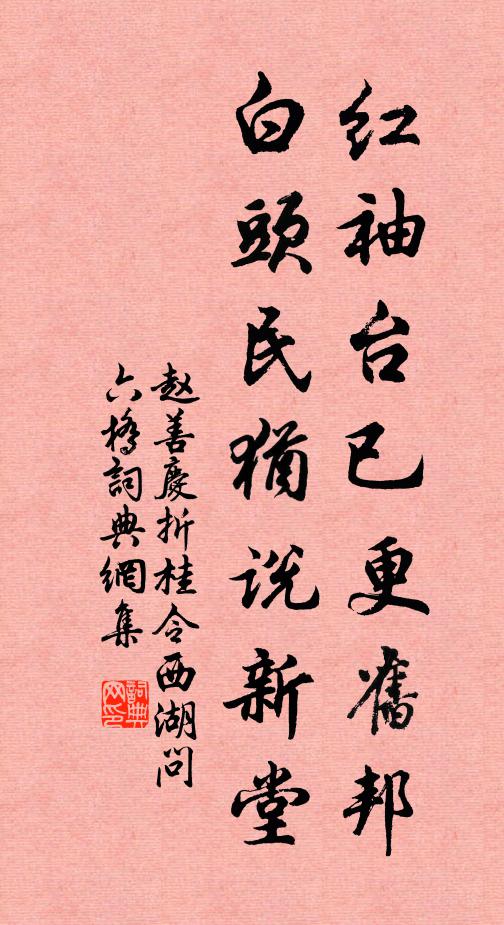 红袖台已更舊邦
白頭民猶说新堂
赵善慶折桂令西湖问
六橋詞典網集
詞典网印